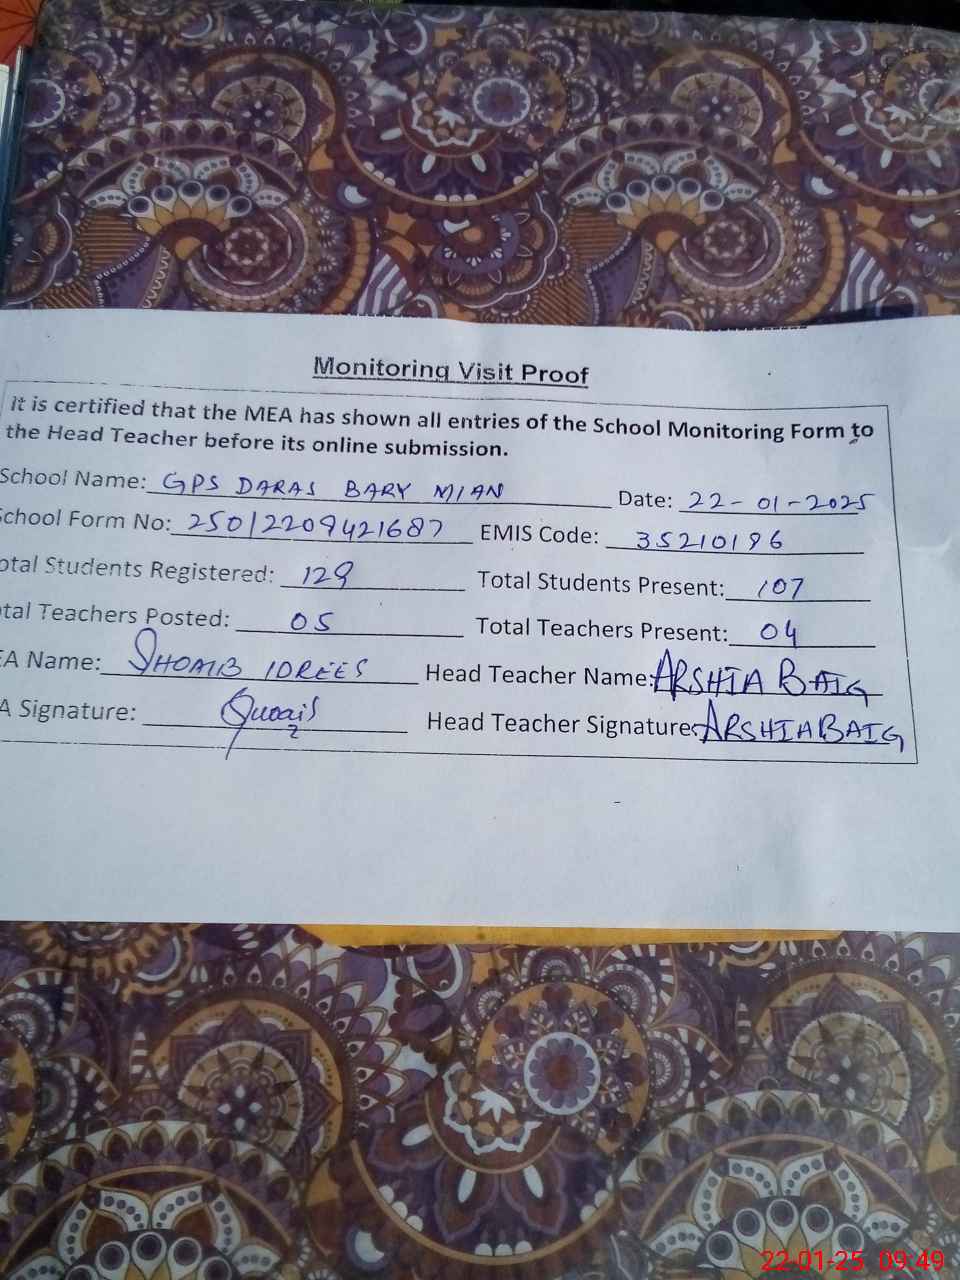 Monitoring Visit Proof
It is certified that the MEA has shown all entries of the School Monitoring Form to
the Head Teacher before its online submission.
School Name: GPS DARAS BARY MIAN Date: 22-01-2025
School Form No: 25012209421687 EMIS Code: 35210196
otal Students Registered: 129 Total Students Present: 107
tal Teachers Posted: 05 Total Teachers Present: 04
EA Name: SHOAIB IDREES Head Teacher Name: ARSHIA BAIG
A Signature: Head Teacher Signature: ARSHIA BAIG
22-01-25 09:49